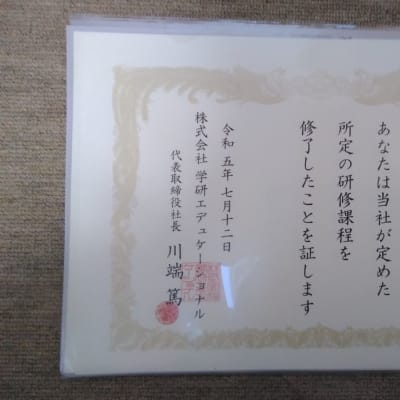 あなたは当社が定めた
所定の研修課程を
修了したことを証します
令和五年七月十二日
株式会社 学研エデュケーショナル
代表取締役社長 川端 篤